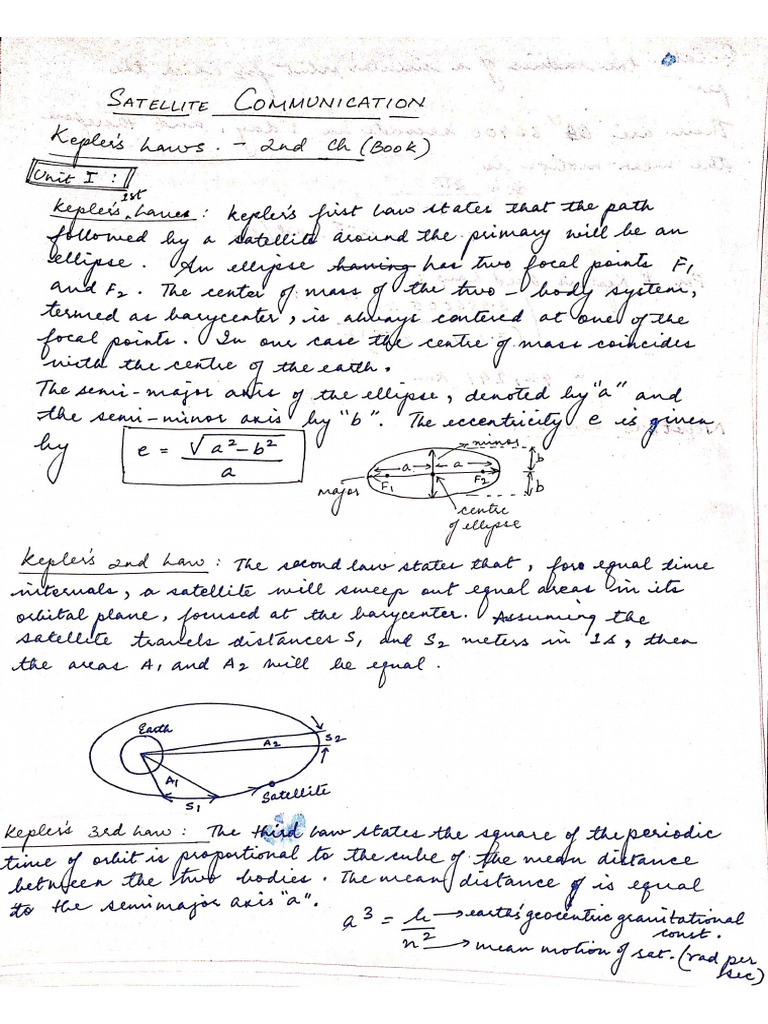 SATELLITE COMMUNICATION
Kepler's Laws. - 2nd Ch (BOOK)
Unit I :
1st
Kepler's Laws : Kepler's first Law states that the path
followed by a satellite around the primary will be an
ellipse. An ellipse having has two focal points F1
and F2. The center of mass of the two-body system,
termed as barycenter, is always centered at one of the
focal points. In one case the centre of mass coincides
with the centre of the earth.
The semi-major axis of the ellipse, denoted by "a" and
the semi-minor axis by "b". The eccentricity e is given
by e = √a²-b² / a
minor
a a b
F1 F2
major b
centre
of ellipse
Kepler's 2nd Law : The second law states that, for equal time
intervals, a satellite will sweep out equal areas in its
orbital plane, focused at the barycenter. Assuming the
satellite travels distances S1 and S2 meters in 1s, then
the areas A1 and A2 will be equal.
Earth
A2 S2
A1
S1 Satellite
Kepler's 3rd Law : The third Law states the square of the periodic
time of orbit is proportional to the cube of the mean distance
between the two bodies. The mean distance is equal
to the semimajor axis "a".
a³ = μ / n²
→ earth's geocentric gravitational
const.
→ mean motion of sat. (rad per
sec)